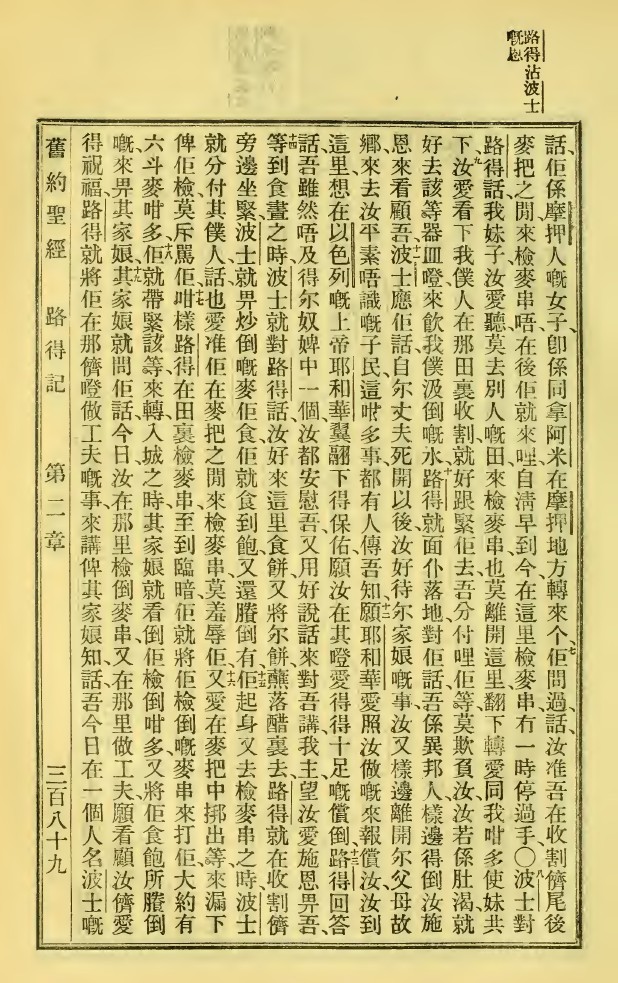 路得沾波士
嘅恩
話、佢係摩押人嘅女子、卽係同拿阿米在摩押地方轉來个、七佢問過話、汝准吾在收割儕尾後
麥把之閒來檢麥串、唔在後佢就來、哩自淸早到今在這里檢麥串有一時停過手〇八波士對
路得話我妹子汝愛聽、莫去別人嘅田來檢麥串、也莫離開這里翻下轉、愛同我咁多使妹共
下、九汝愛看下我僕人在那田裏收割、就好跟緊佢去、吾分付哩佢等莫欺負汝、汝若係肚渴、就
好去該等器皿嶝來飲我僕汲倒嘅水、十路得就面仆落地對佢話、吾係異邦人、樣邊得倒汝施
恩來看顧吾、十一波士應佢話、自尔丈夫死開以後、汝好待尔家娘嘅事、汝又樣邊離開尔父母故
鄉、來去汝平素唔識嘅子民、這咁多事都有人傳吾知、十二願耶和華愛照汝做嘅來報償汝、汝到
這里想在以色列嘅上帝耶和華翼翮下得保佑、願汝在其嶝愛得得十足嘅償倒、十三路得回答
話、吾雖然唔及得尔奴婢中一個、汝都安慰吾、又用好說話來對吾講、我主望汝愛施恩畀吾、
十四等到食晝之時、波士就對路得話、汝好來這里食餅、又將尔餅蘸落醋裏去、路得就在收割儕
旁邊坐緊、波士就畀炒倒嘅麥佢食、佢就食到飽、又還賸倒有、十五佢起身又去檢麥串之時、波士
就分付其僕人話、也愛准佢在麥把之閒來檢麥串、莫羞辱佢、十六又愛在麥把中挪出等來漏下
俾佢檢、莫斥罵佢、十七咁樣路得在田裏檢麥串至到臨暗、佢就將佢檢倒嘅麥串來打、佢大約有
六斗麥咁多、十八佢就帶緊該等來轉、入城之時其家娘就看倒佢檢倒咁多、又將佢食飽所賸倒
嘅來畀其家娘、十九其家娘就問佢話、今日汝在那里檢倒麥串、又在那里做工夫、願看顧汝儕愛
得祝福、路得就將佢在那儕嶝做工夫嘅事、來講俾其家娘知、話吾今日在一個人名波士嘅
舊約聖經　路得記　第二章　三百八十九